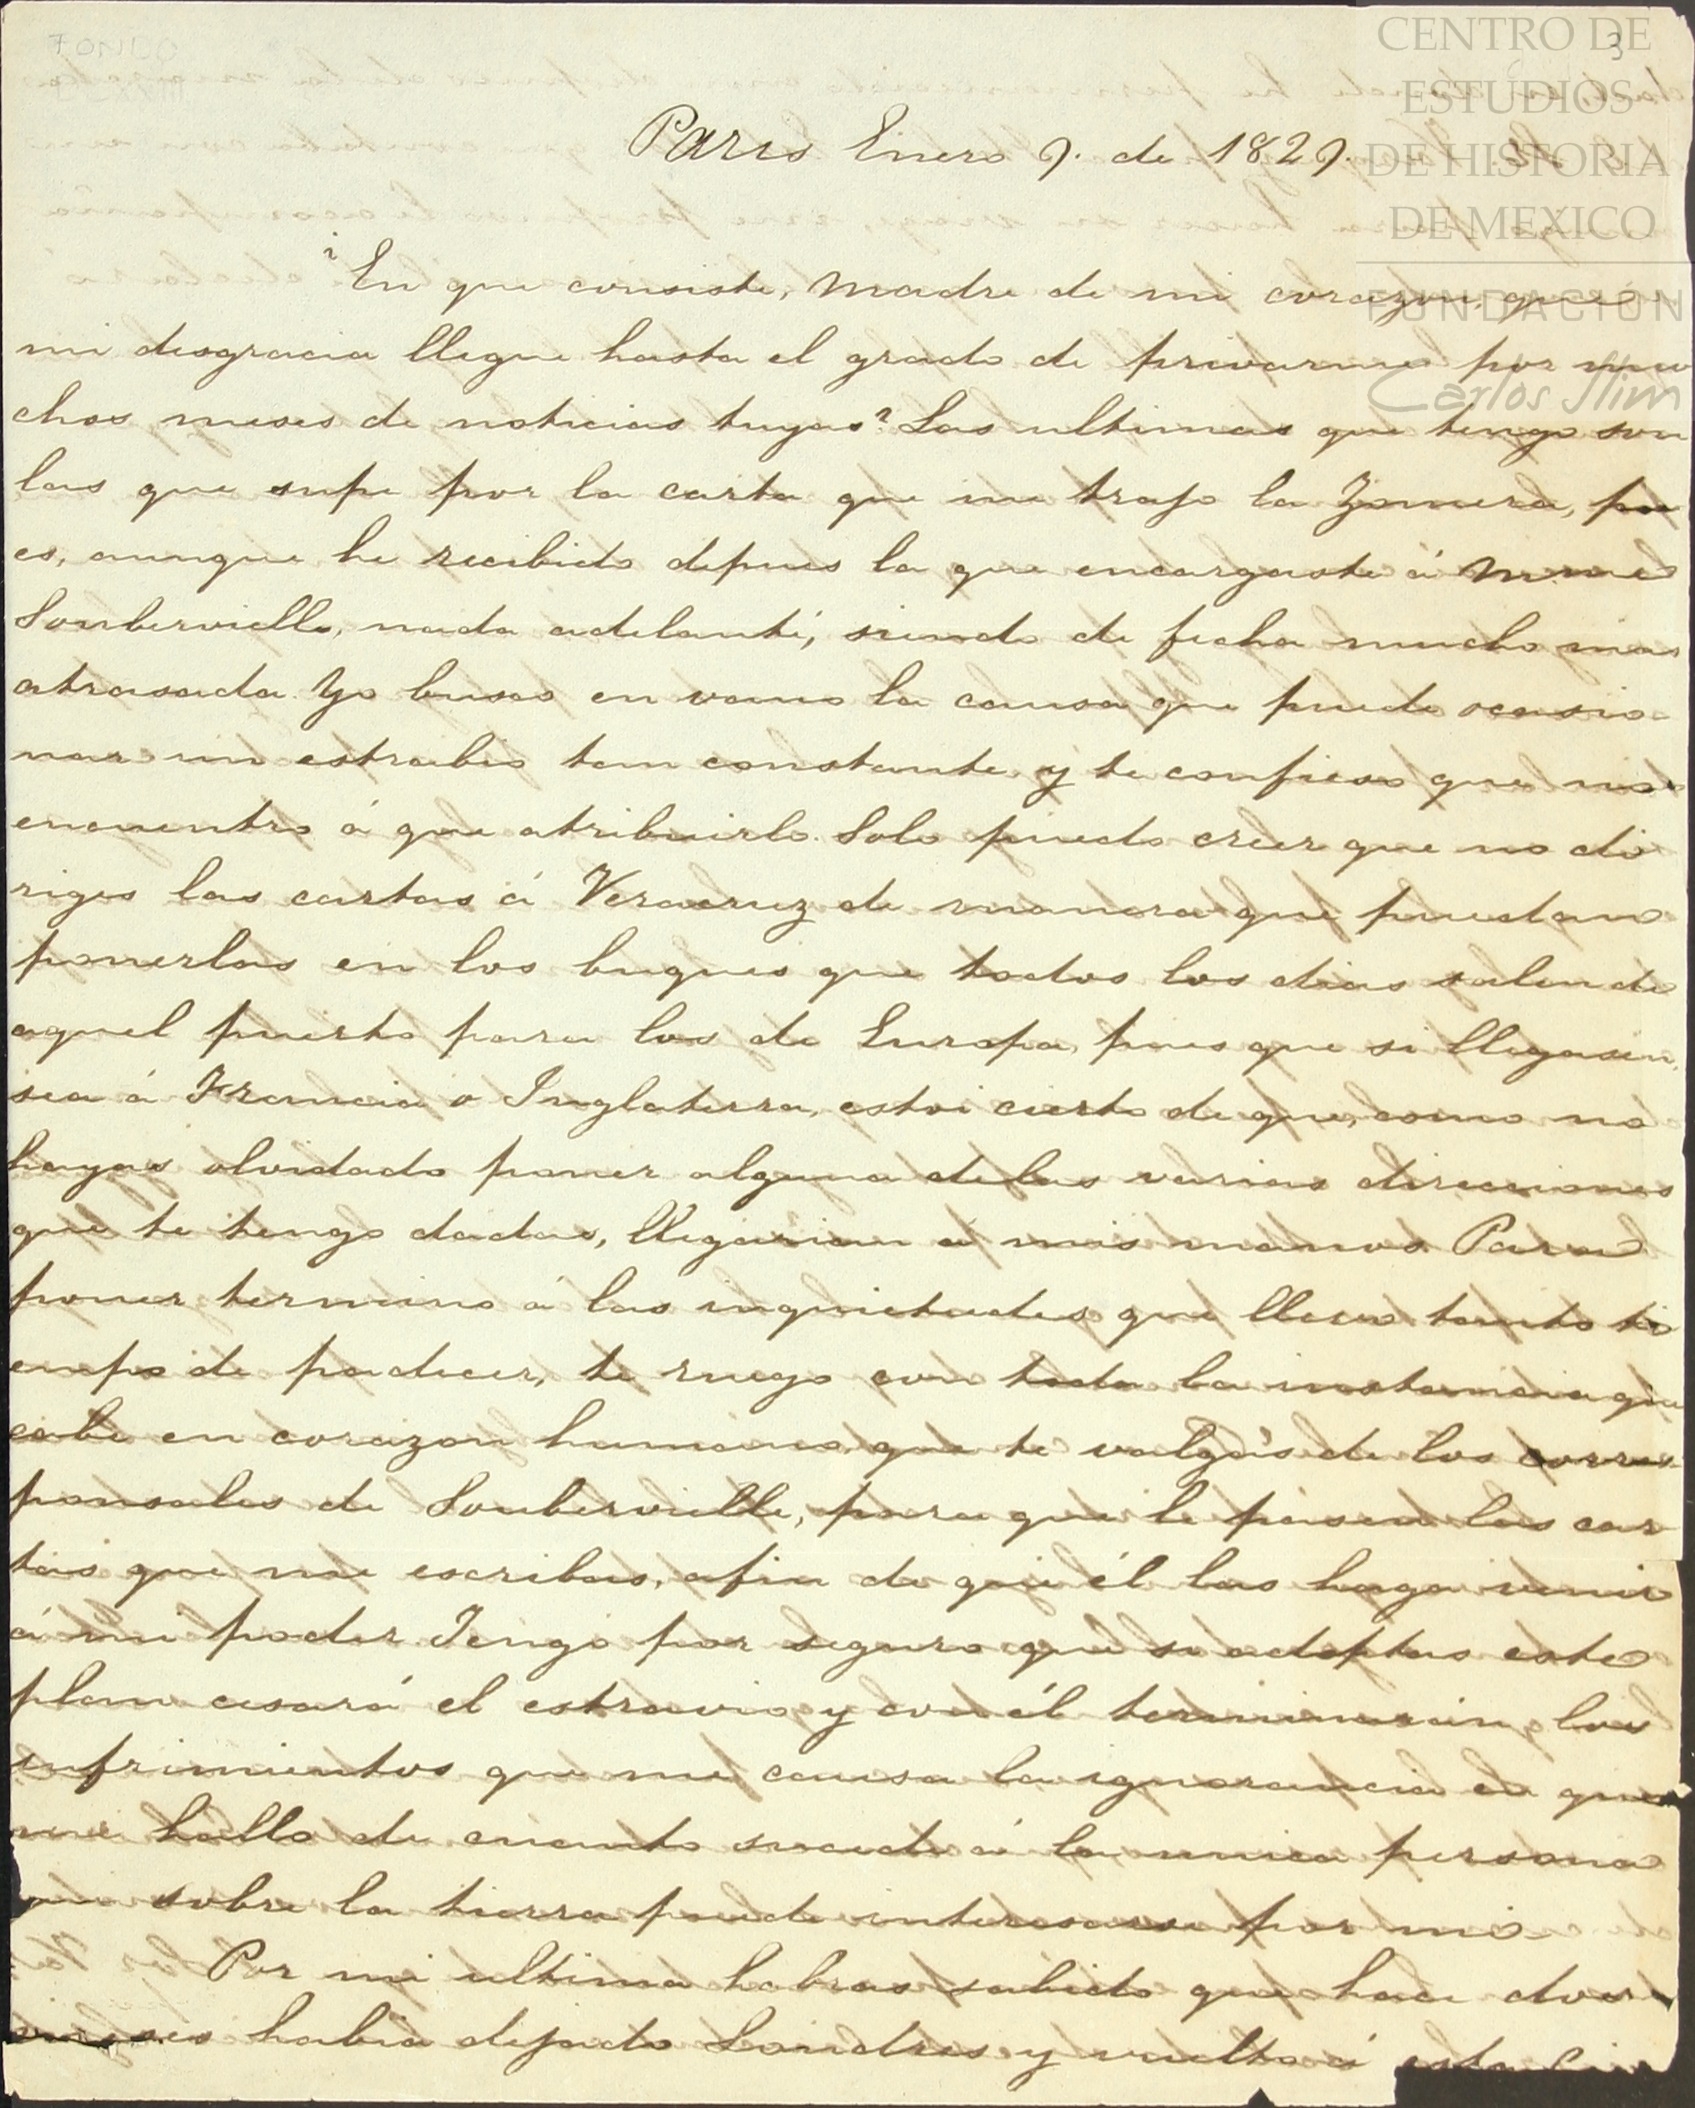 3
CENTRO DE
ESTUDIOS
DE HISTORIA
DE MEXICO
FUNDACIÓN
Carlos Slim
Paris Enero 9. de 1829.
¿En que consiste, Madre de mi corazon, que
mi desgracia llegue hasta el grado de privarme por mu
chos meses de noticias tuyas? Las ultimas que tengo son
las que supe por la carta que me trajo la Zomera, pu
es, aunque he recibido depues la que encargaste á Mme
Soubervielle, nada adelanté, siendo de fecha mucho mas
atrasada. Yo busco en vano la causa que puede ocasio
nar un estrabio tan constante y te confieso que no
encuentro á que atribuirlo. Solo puedo creer que no di
riges las cartas á Veracruz de manera que puedan
ponerlas en los buques que todos los dias salen de
aquel puerto para los de Europa, pues que si llegasen,
sea á Francia o Inglaterra, estoi cierto de que, como no
hayas olvidado poner alguna de las varias direcciones
que te tengo dadas, llegarian á mis manos. Para
poner termino á las inquietudes que llevo tanto ti
empo de padecer, te ruego con toda la instancia que
cabe en corazon humano que te valgas de los corres
ponsales de Soubervielle, para que le pasen las car
tas que me escribas, afin de que él las haga venir
á mi poder. Tengo por seguro que si adoptas este
plan cesará el estravio y con él terminarán los
sufrimientos que me causa la ignorancia en que
me hallo de cuanto sucede á la unica persona
que sobre la tierra puede interesarse por mi
Por mi ultima habras sabido que hace dos
meses habia dejado Londres y vuelto á esta